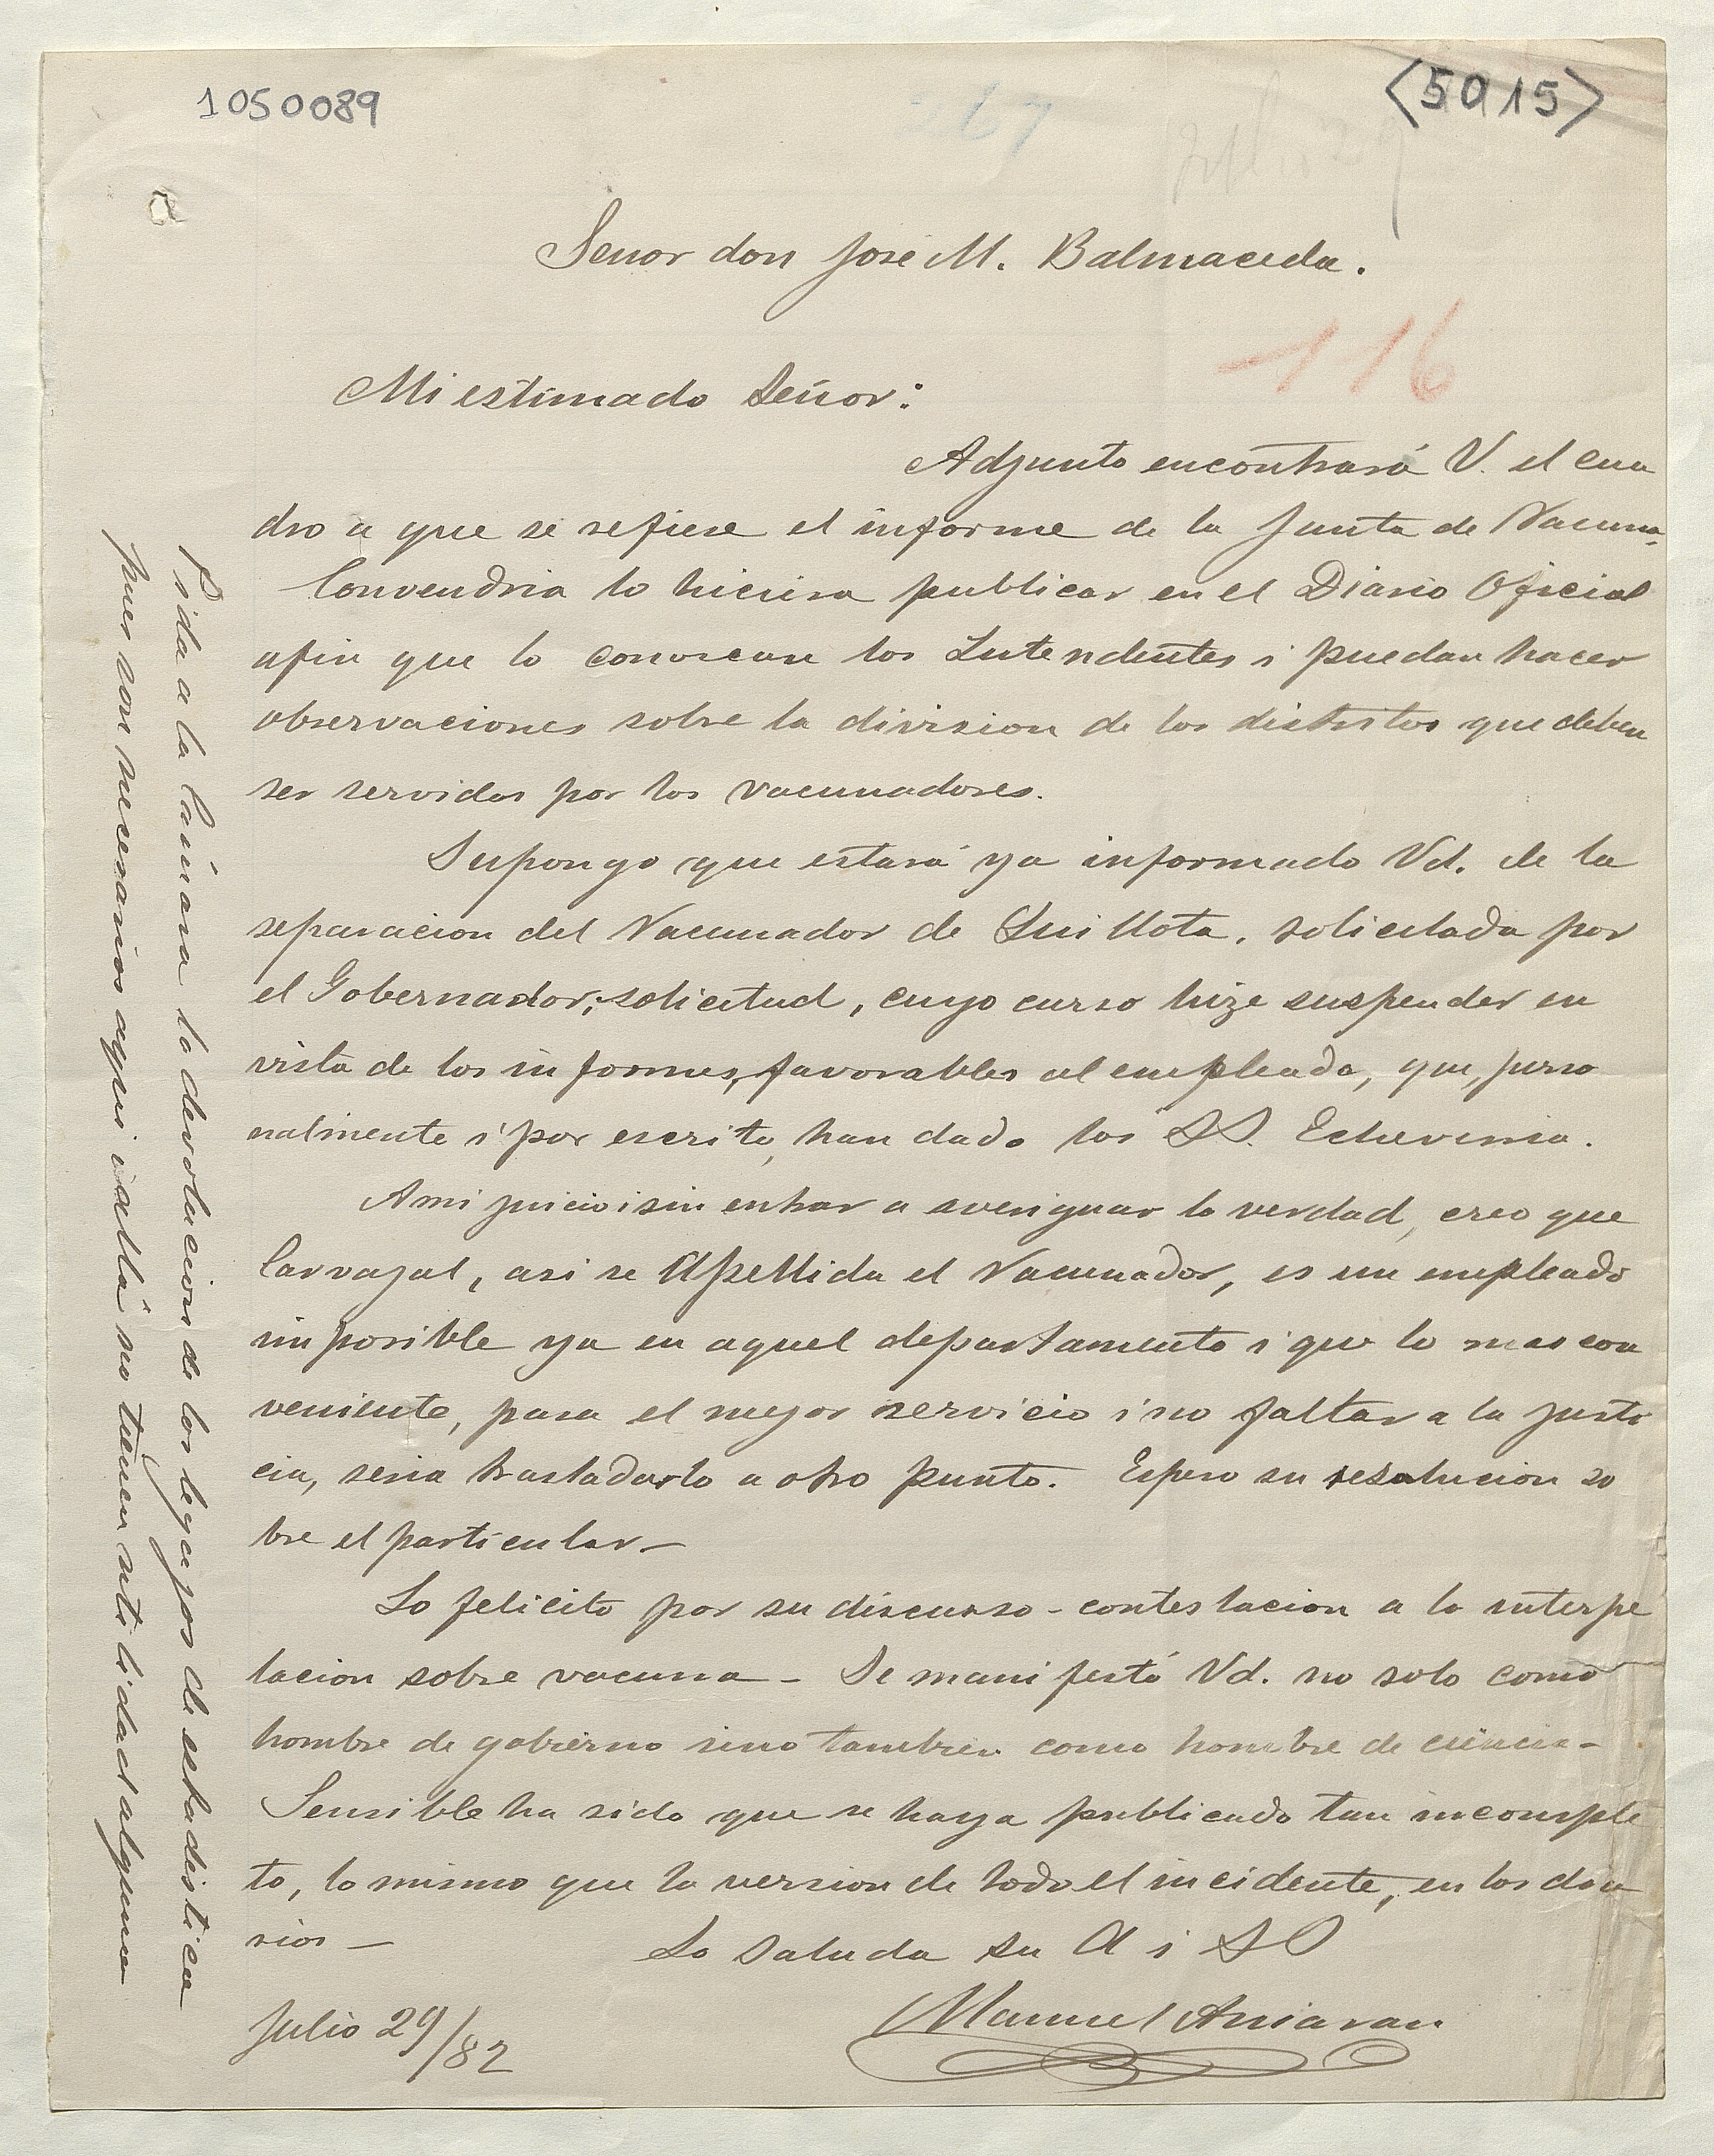 1050089
<5015>
67
Señor don José M. Balmaceda.
116
Mi estimado Señor:
Adjunto encontrará V. el cua
dro a que se refiere el informe de la Junta de Vacuna.
Convendria lo hiciera publicar en el Diario Oficial
afin que lo conozcan los Intendentes i puedan hacer
observaciones sobre la division de los distritos que deben
ser servidos por los vacunadores.
Supongo que estará ya informado Vd. de la
separacion del Vacunador de Quillota, solicitada por
el Gobernador; solicitud, cuyo curso hize suspender en
vista de los informes, favorables al empleado, que, perso
nalmente i por escrito, han dado los SS. Echeverria.
A mi juicio i sin entrar a averiguar la verdad, creo que
Carvajal, asi se Apellida el Vacunador, es un empleado
imposible ya en aquel departamento i que lo mas con
veniente, para el mejor servicio i no faltar a la justi
cia, seria trasladarlo a otro punto. Espero su resolucion so
bre el particular—
Lo felicito por su discurso-contestacion a la interpe
lacion sobre vacuna— Se manifestó Vd. no solo como
hombre de gobierno sino tambien como hombre de ciencia—
Sensible ha sido que se haya publicado tan incomple
to, lo mismo que la version de todo el incidente, en los dia
rios—
Lo saluda su A i SS
Manuel
Julio 29/82
Pida a la Cámara la devolucion de los legajos de estadistica
pues son necesarios aqui i allá no tienen utilidad alguna